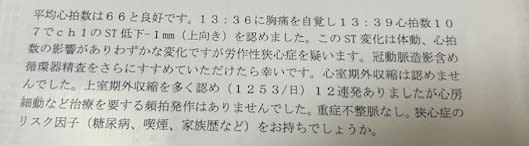 平均心拍数は66と良好です。13:36に胸痛を自覚し13:39心拍数10
7でch1のST低下-1mm(上向き)を認めました。このST変化は体動、心拍
数の影響がありわずかな変化ですが労作性狭心症を疑います。冠動脈造影含め
循環器精査をさらにすすめていただけたら幸いです。心室期外収縮は認めませ
んでした。上室期外収縮を多く認め(1253/日)12連発ありましたが心房
細動など治療を要する頻拍発作はありませんでした。重症不整脈なし。狭心症の
リスク因子(糖尿病、喫煙、家族歴など)をお持ちでしょうか。